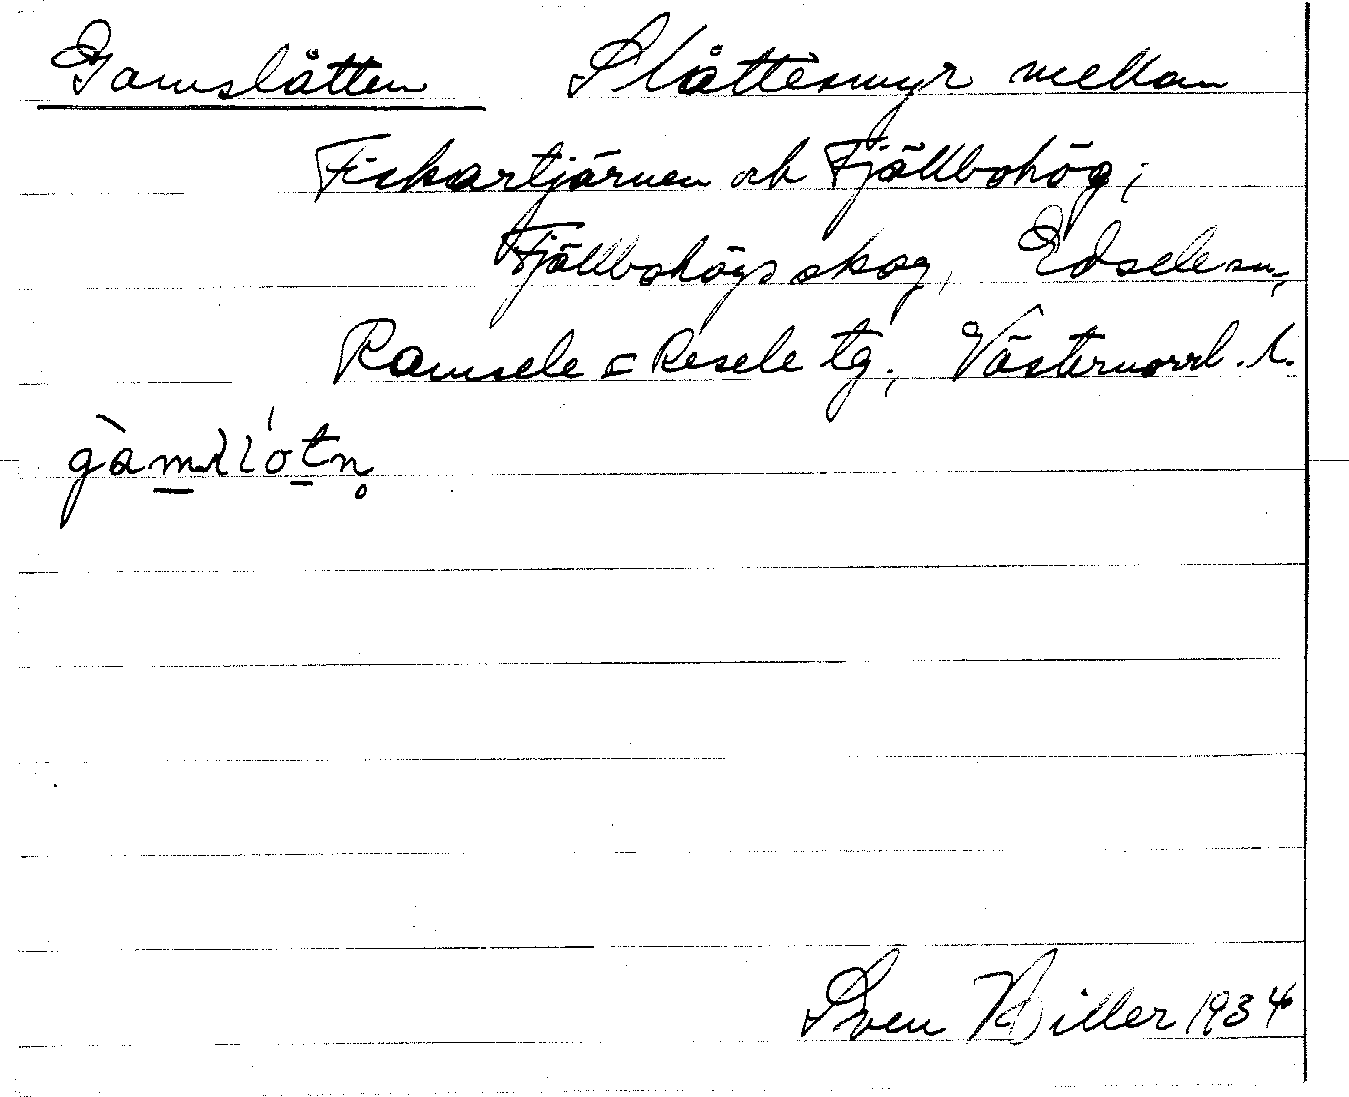 Gamslåtten Slåttesmyr mellan
Fiskartjärnen och Fjällbohög;
Fjällbohögsskog, Edsele sn;
Ramsele o Resele tg; Västernorrl. l.
Sven Biller 1934